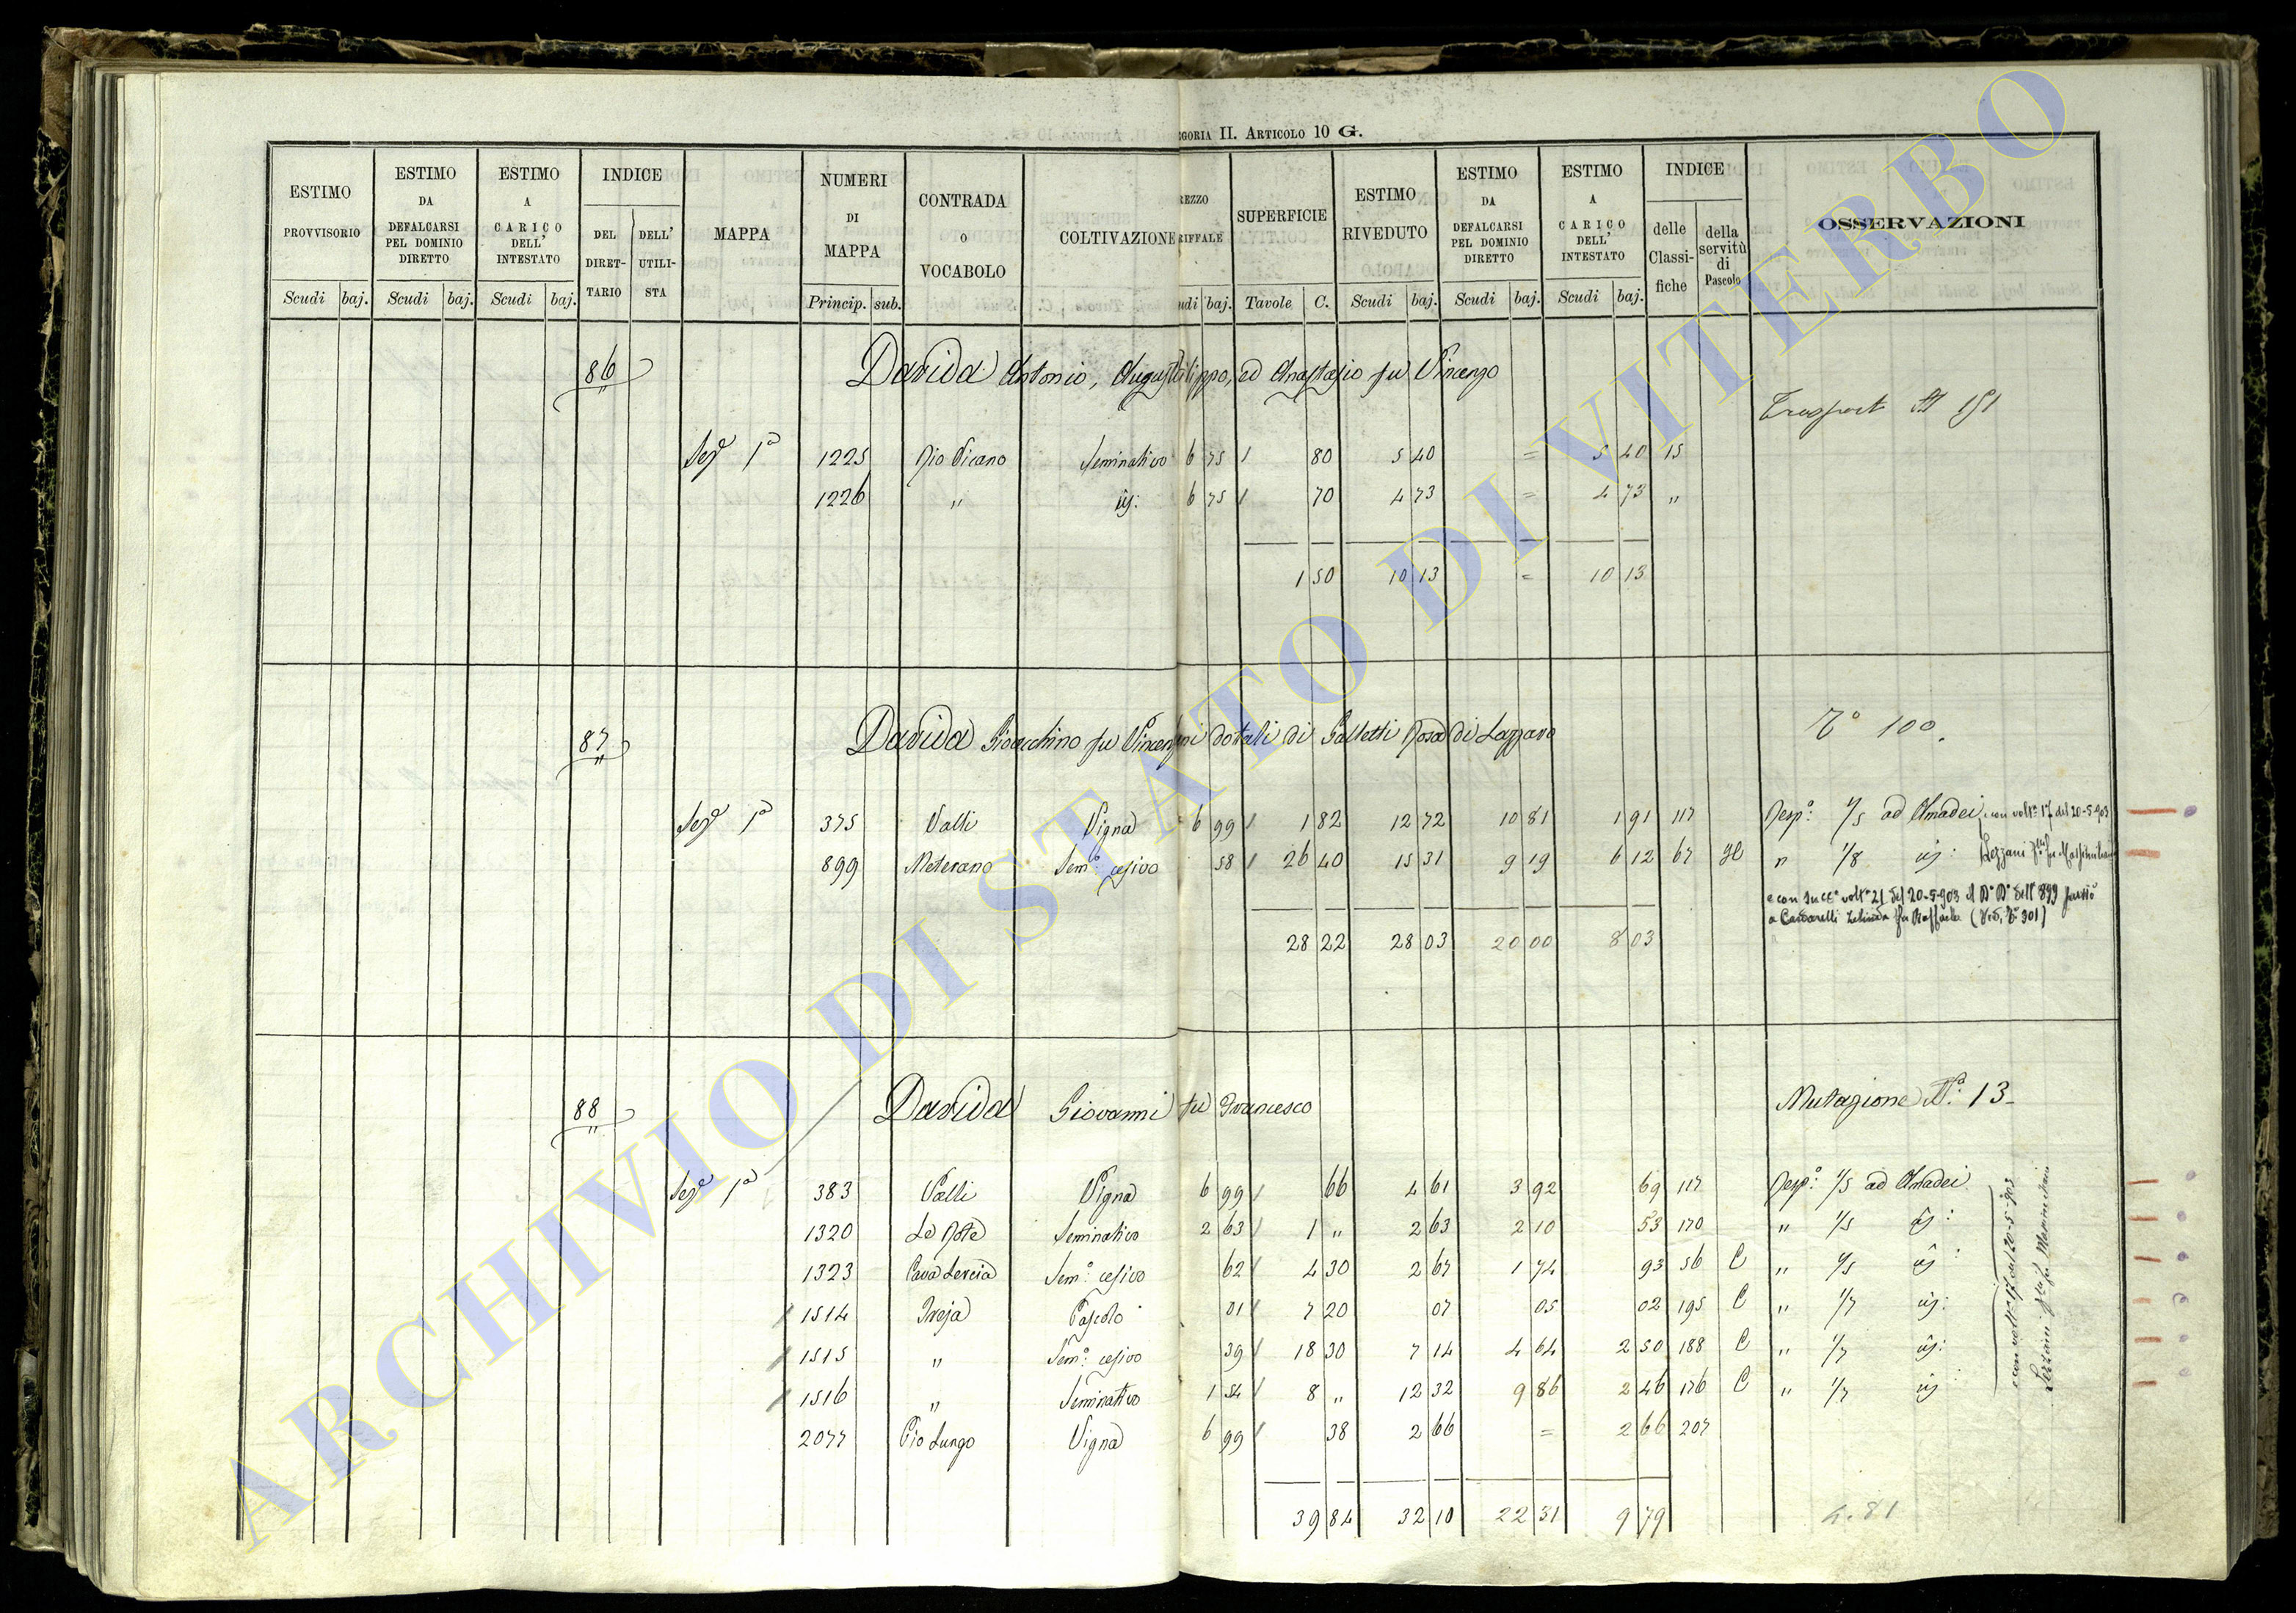 GORIA II. ARTICOLO 10 G.
ESTIMO PROVVISORIO Scudi baj. ESTIMO DA DEFALCARSI PEL DOMINIO DIRETTO Scudi baj. ESTIMO A CARICO DELL' INTESTATO Scudi baj. INDICE DEL DIRETTARIO DELL' UTILISTA MAPPA NUMERI DI MAPPA Princip. sub. CONTRADA O VOCABOLO COLTIVAZIONE
REZZO RIFFALE udi baj. SUPERFICIE Tavole C. ESTIMO RIVEDUTO Scudi baj. ESTIMO DA DEFALCARSI PEL DOMINIO DIRETTO Scudi baj. ESTIMO A CARICO DELL' INTESTATO Scudi baj. INDICE delle Classifiche della servitù di Pascolo OSSERVAZIONI
86 Davida Antonio, August lippo, ed Anastasio fu Vincenzo
Trasport
Sezᵉ 1ª 1225 Rio Vicano Seminativo 6 75 / 80 5 40 = 5 40 15
1226 " id: 6 75 / 70 4 73 = 4 73 "
1 50 10 13 = 10 13
87 Davida Gioacchino fu Vincen ni dotali di Galletti Rosa di Lazzaro
Tº 100.
Sezᵉ 1ª 375 Valli Vigna 6 99 / 1 82 12 72 10 81 1 91 117 Resp: 1/5 ad Amadei con voltª 17 del 20-5-903
899 Meterano Semº: cesivo 58 / 26 40 15 31 9 19 6 12 67 " 1/8 id: Lezzani fu Massimiliano
e con succª voltª 21 del 20-5-903 il Dº Dº dell' 899 passò
a Cardarelli fu Raffaele (Ved. Tº 301)
28 22 28 03 20 00 8 03
88 Davida Giovanni fu Francesco
Mutazione Nº: 13
Sezᵉ 1ª 383 Valli Vigna 6 99 / 66 4 61 3 92 69 117 Resp: 1/5 ad Amadei
1320 Le Rote Seminativo 2 63 / 1 " 2 63 2 10 53 170 " 1/5 id:
1323 Cava Lercia Semº: cesivo 62 / 4 30 2 67 1 74 93 56 C " 1/5 id:
1514 Pascolo 01 / 7 20 07 05 02 195 C " 1/7 id:
1515 " Semº: cesivo 39 / 18 30 7 14 4 64 2 50 188 C " 1/7 id:
1516 " Seminativo 1 54 / 8 " 12 32 9 86 2 46 176 C " 1/7 id:
2077 Pio Lungo Vigna 6 99 / 38 2 66 = 2 66 207
con voltª 17 del 20-5-903
Lezzani fu Massimiliano
39 84 32 10 22 31 9 79
ARCHIVIO DI STATO DI VITERBO